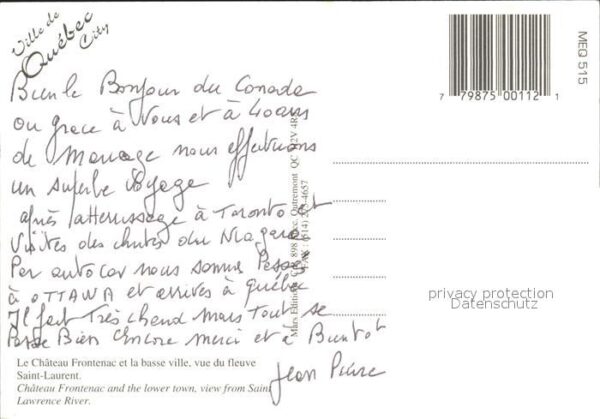 Ville de
Québec
City
MEQ 515
7 79875 00112 1
Bien le Bonjour du Canada
ou grace à Vous et à 40 ans
de Mariage nous effectuons
un superbe Voyage
après l'atterrissage à Toronto et
Visites des chutes du Niagara
Par autocar nous somme Passés
à OTTAWA et arrivés à Québec
Il fait Très chaud mais Tout se
Passe Bien Encore merci et à Bientot
Jean Pierre
Mars Editions 898 Outremont QC H2V 4R8
FAX : (514) -4657
privacy protection
Datenschutz
Le Château Frontenac et la basse ville, vue du fleuve
Saint-Laurent.
Château Frontenac and the lower town, view from Saint
Lawrence River.